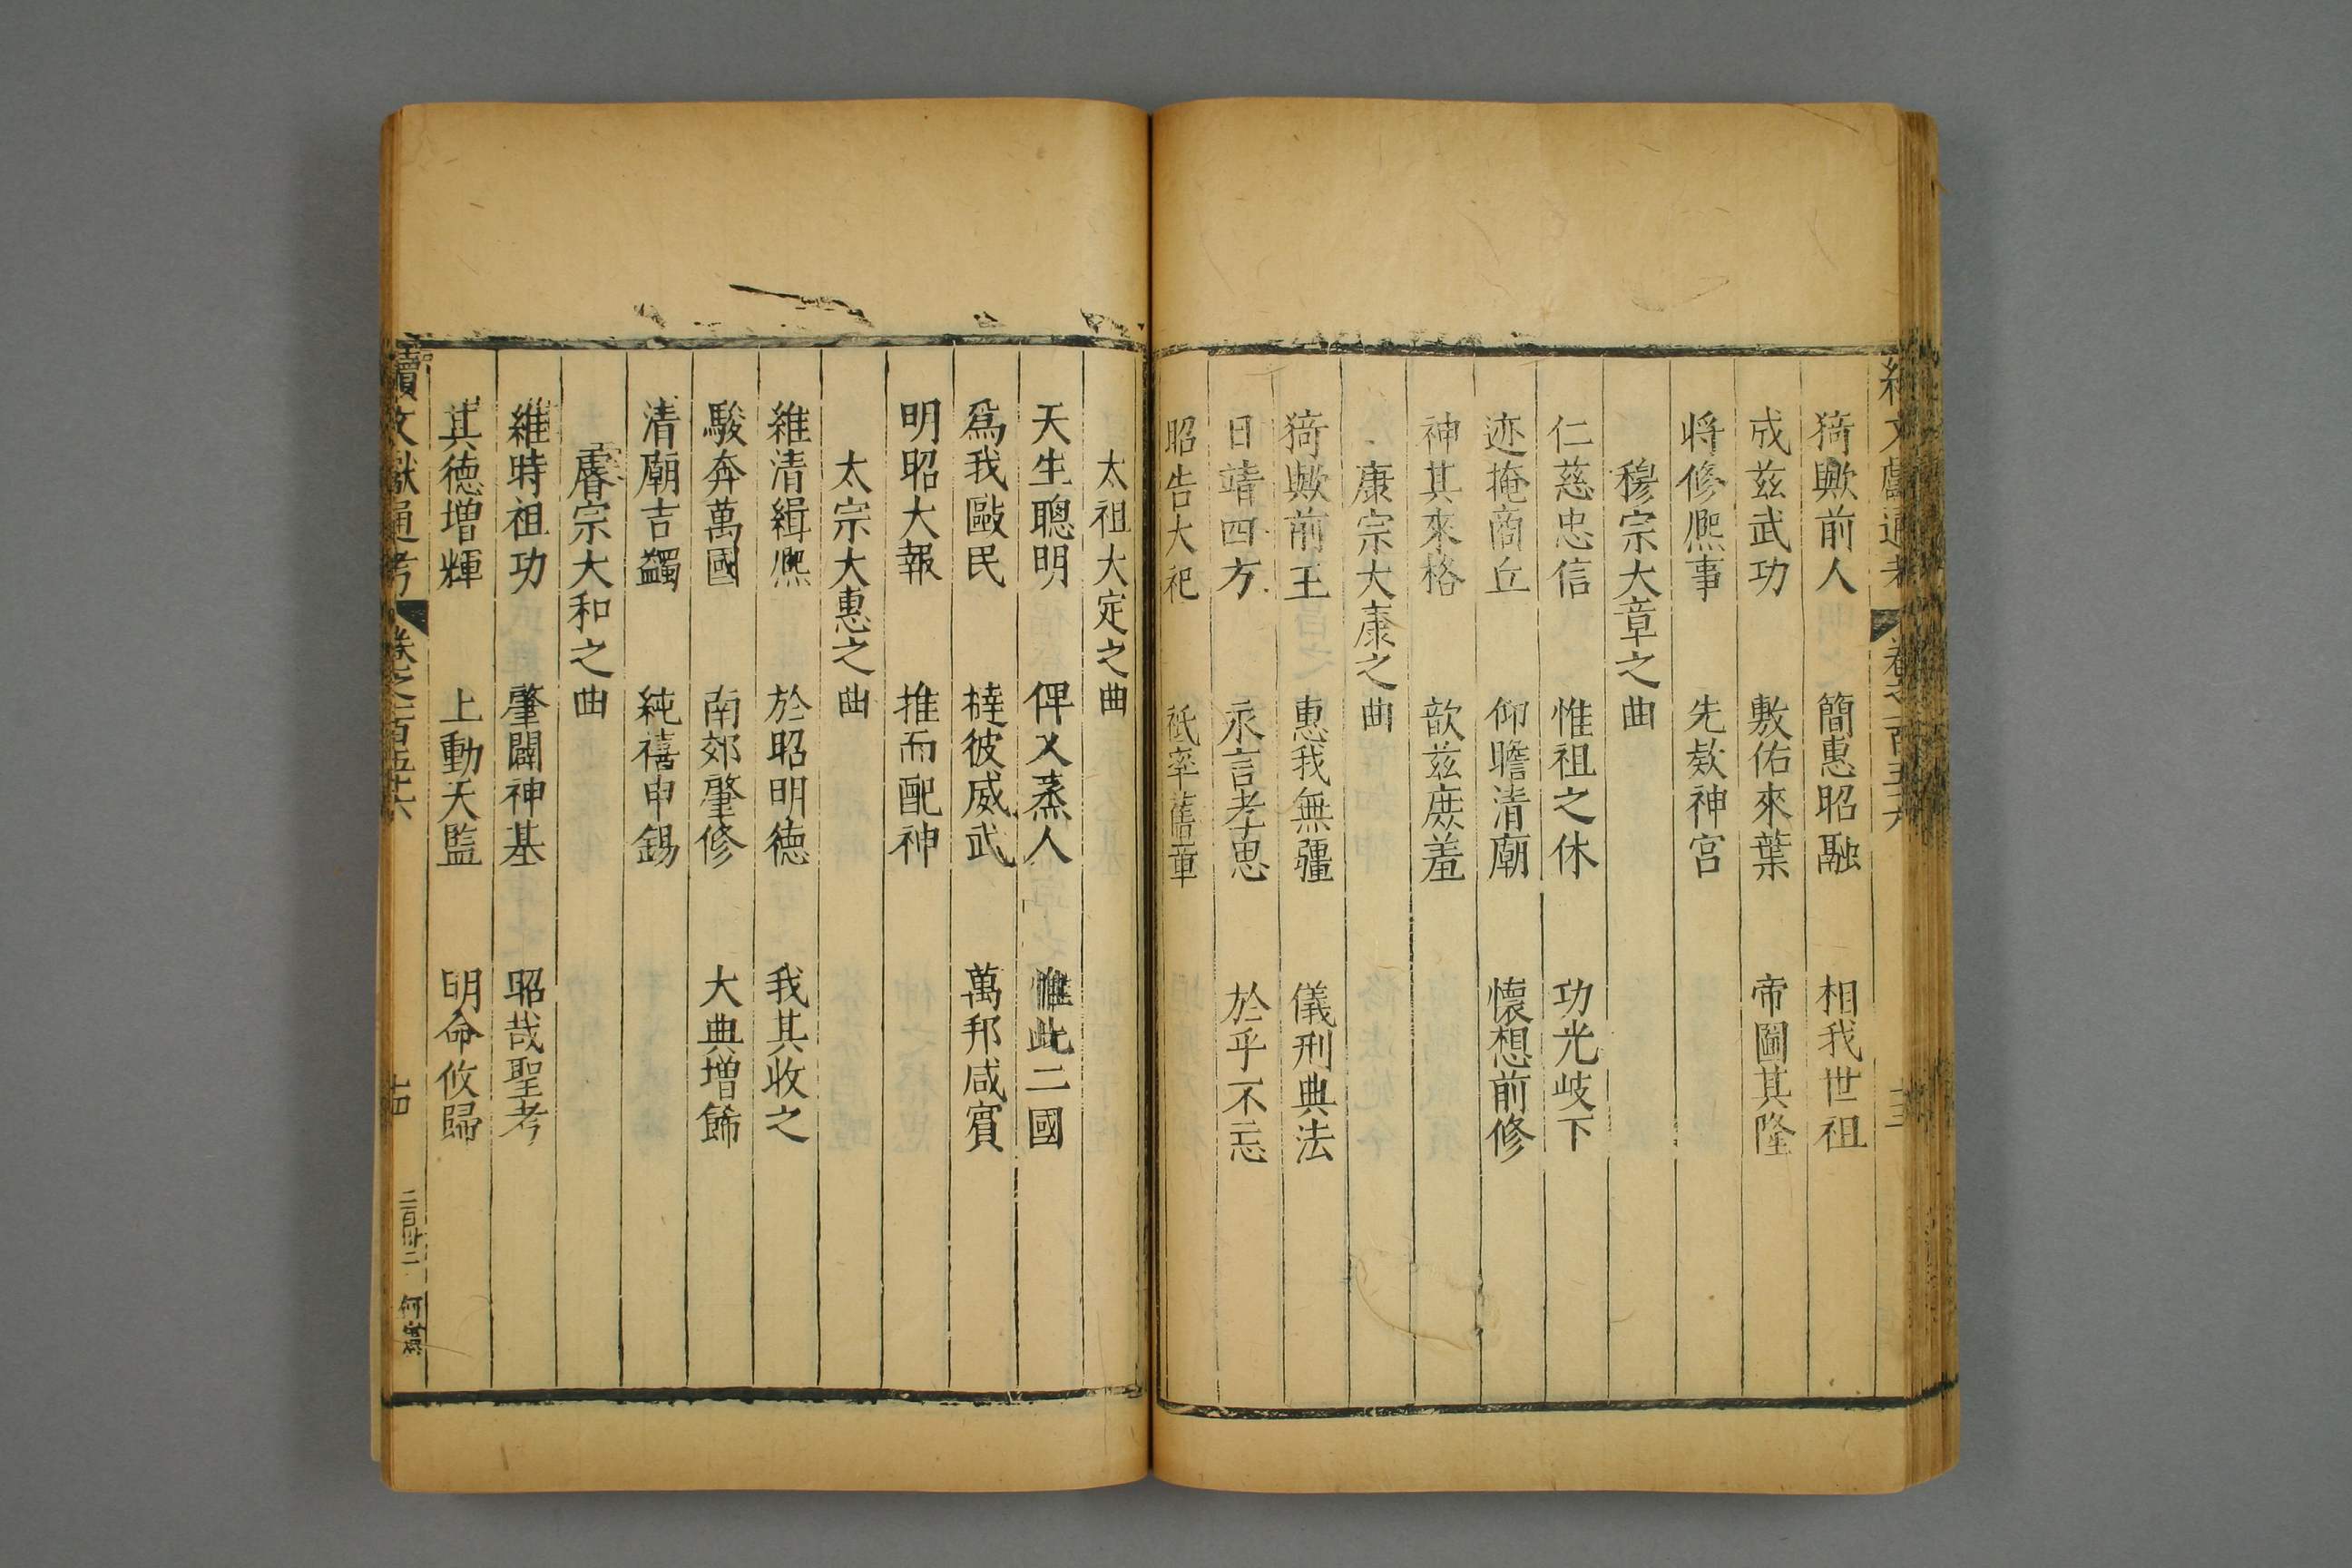 續文獻通考 卷之一百五十六 十三
猗歟前人 簡惠昭融 相我世祖
成兹武功 敷佑來葉 帝圖其隆
将修熈事 先款神宫
穆宗大章之曲
仁慈忠信 惟祖之休 功光岐下
迹掩商丘 仰瞻清廟 懷想前修
神其來格 歆兹庶羞
康宗大康之曲
猗歟前王 惠我無疆 儀刑典法
日靖四方 永言孝思 於乎不忘
昭告大祀 祗率舊章
太祖大定之曲
天生聰明 俾乂蒸人 惟此二國
爲我敺民 撻彼威武 萬邦咸賓
明昭大報 推而配神
太宗大惠之曲
維清緝熈 於昭明德 我其收之
駿奔萬國 南郊肇修 大典增餙
清廟吉蠲 純禧申錫
睿宗大和之曲
維時祖功 肇闢神基 昭哉聖考
其德增輝 上動天監 明命攸歸
續文獻通考 卷之一百五十六 十四 二百卅二 何